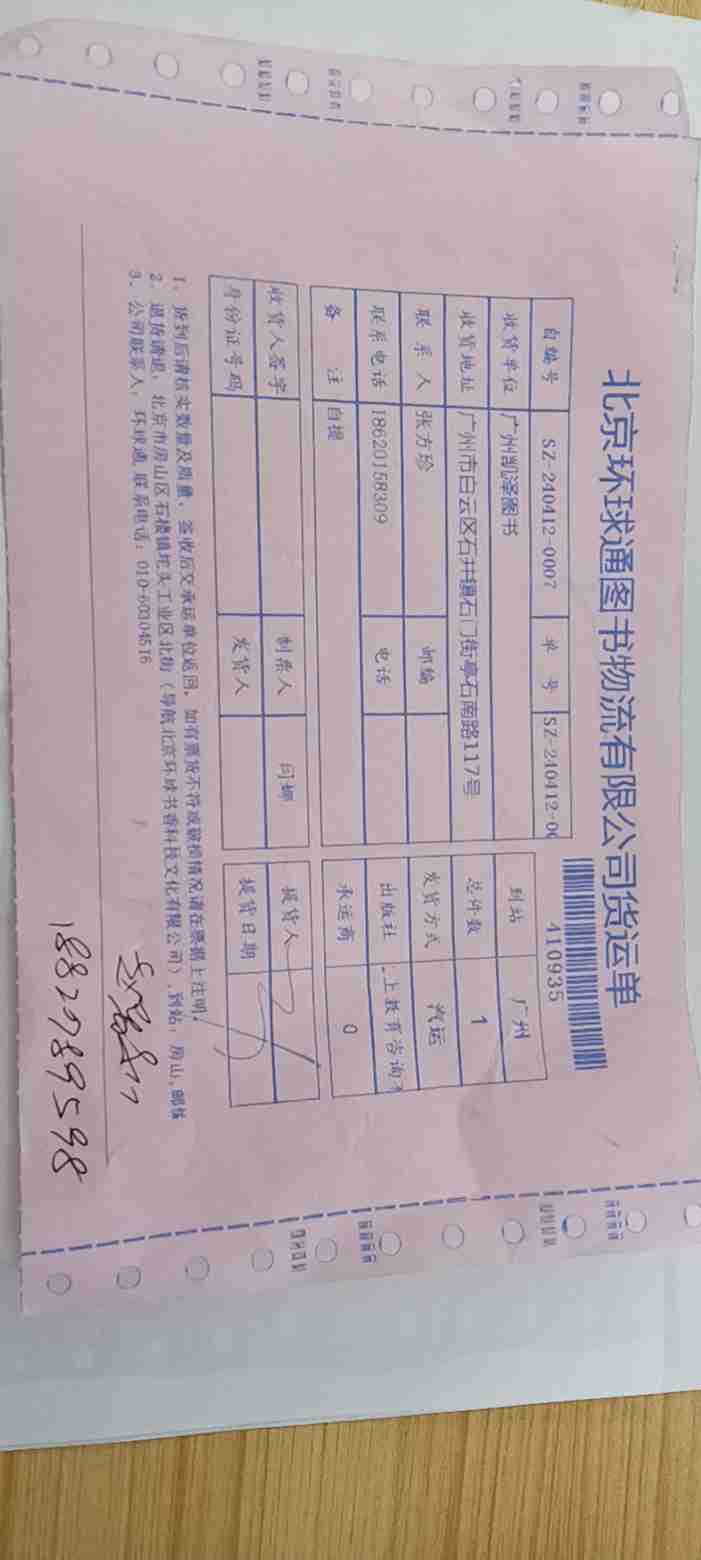 北京环球通图书物流有限公司货运单
410935
自编号 SZ-240412-0007 单 号 SZ-240412-00 到站 广州
收货单位 广州凯泽图书 总件数 1
收货地址 广州市白云区石井镇石门街亭石南路117号 发货方式 汽运
联 系 人 张方珍 邮编 出版社 上教育咨询
联系电话 18620158309 电话 承运商 0
备 注 自提
收货人签字 制票人 闫娜 提货人
身份证号码 发货人 提货日期
1、货到后请核实数量及质量，签收后交承运单位返回，如有票货不符或破损情况请在票据上注明。
2、退货请退，北京市房山区石楼镇坨头工业区北街（导航北京环球书香科技文化有限公司），到站：房山,邮核
3、公司联系人：环球通 联系电话：010-60304516
18829789598